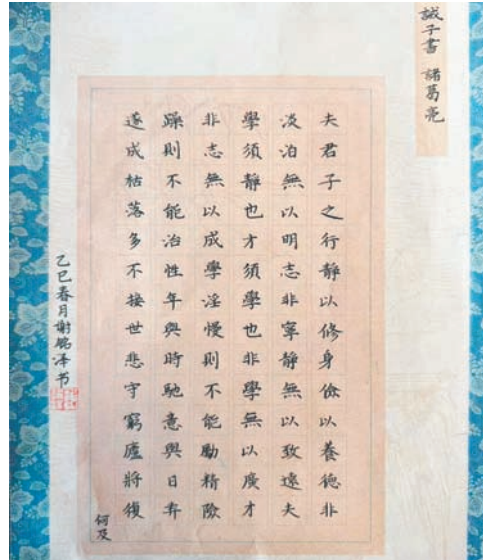 誡子書 諸葛亮
夫君子之行靜以修身儉以養德非
淡泊無以明志非寧靜無以致遠夫
學須靜也才須學也非學無以廣才
非志無以成學淫慢則不能勵精險
躁則不能治性年與時馳意與日弃
遂成枯落多不接世悲守窮廬將復
何及
乙巳春月谢铭泽书